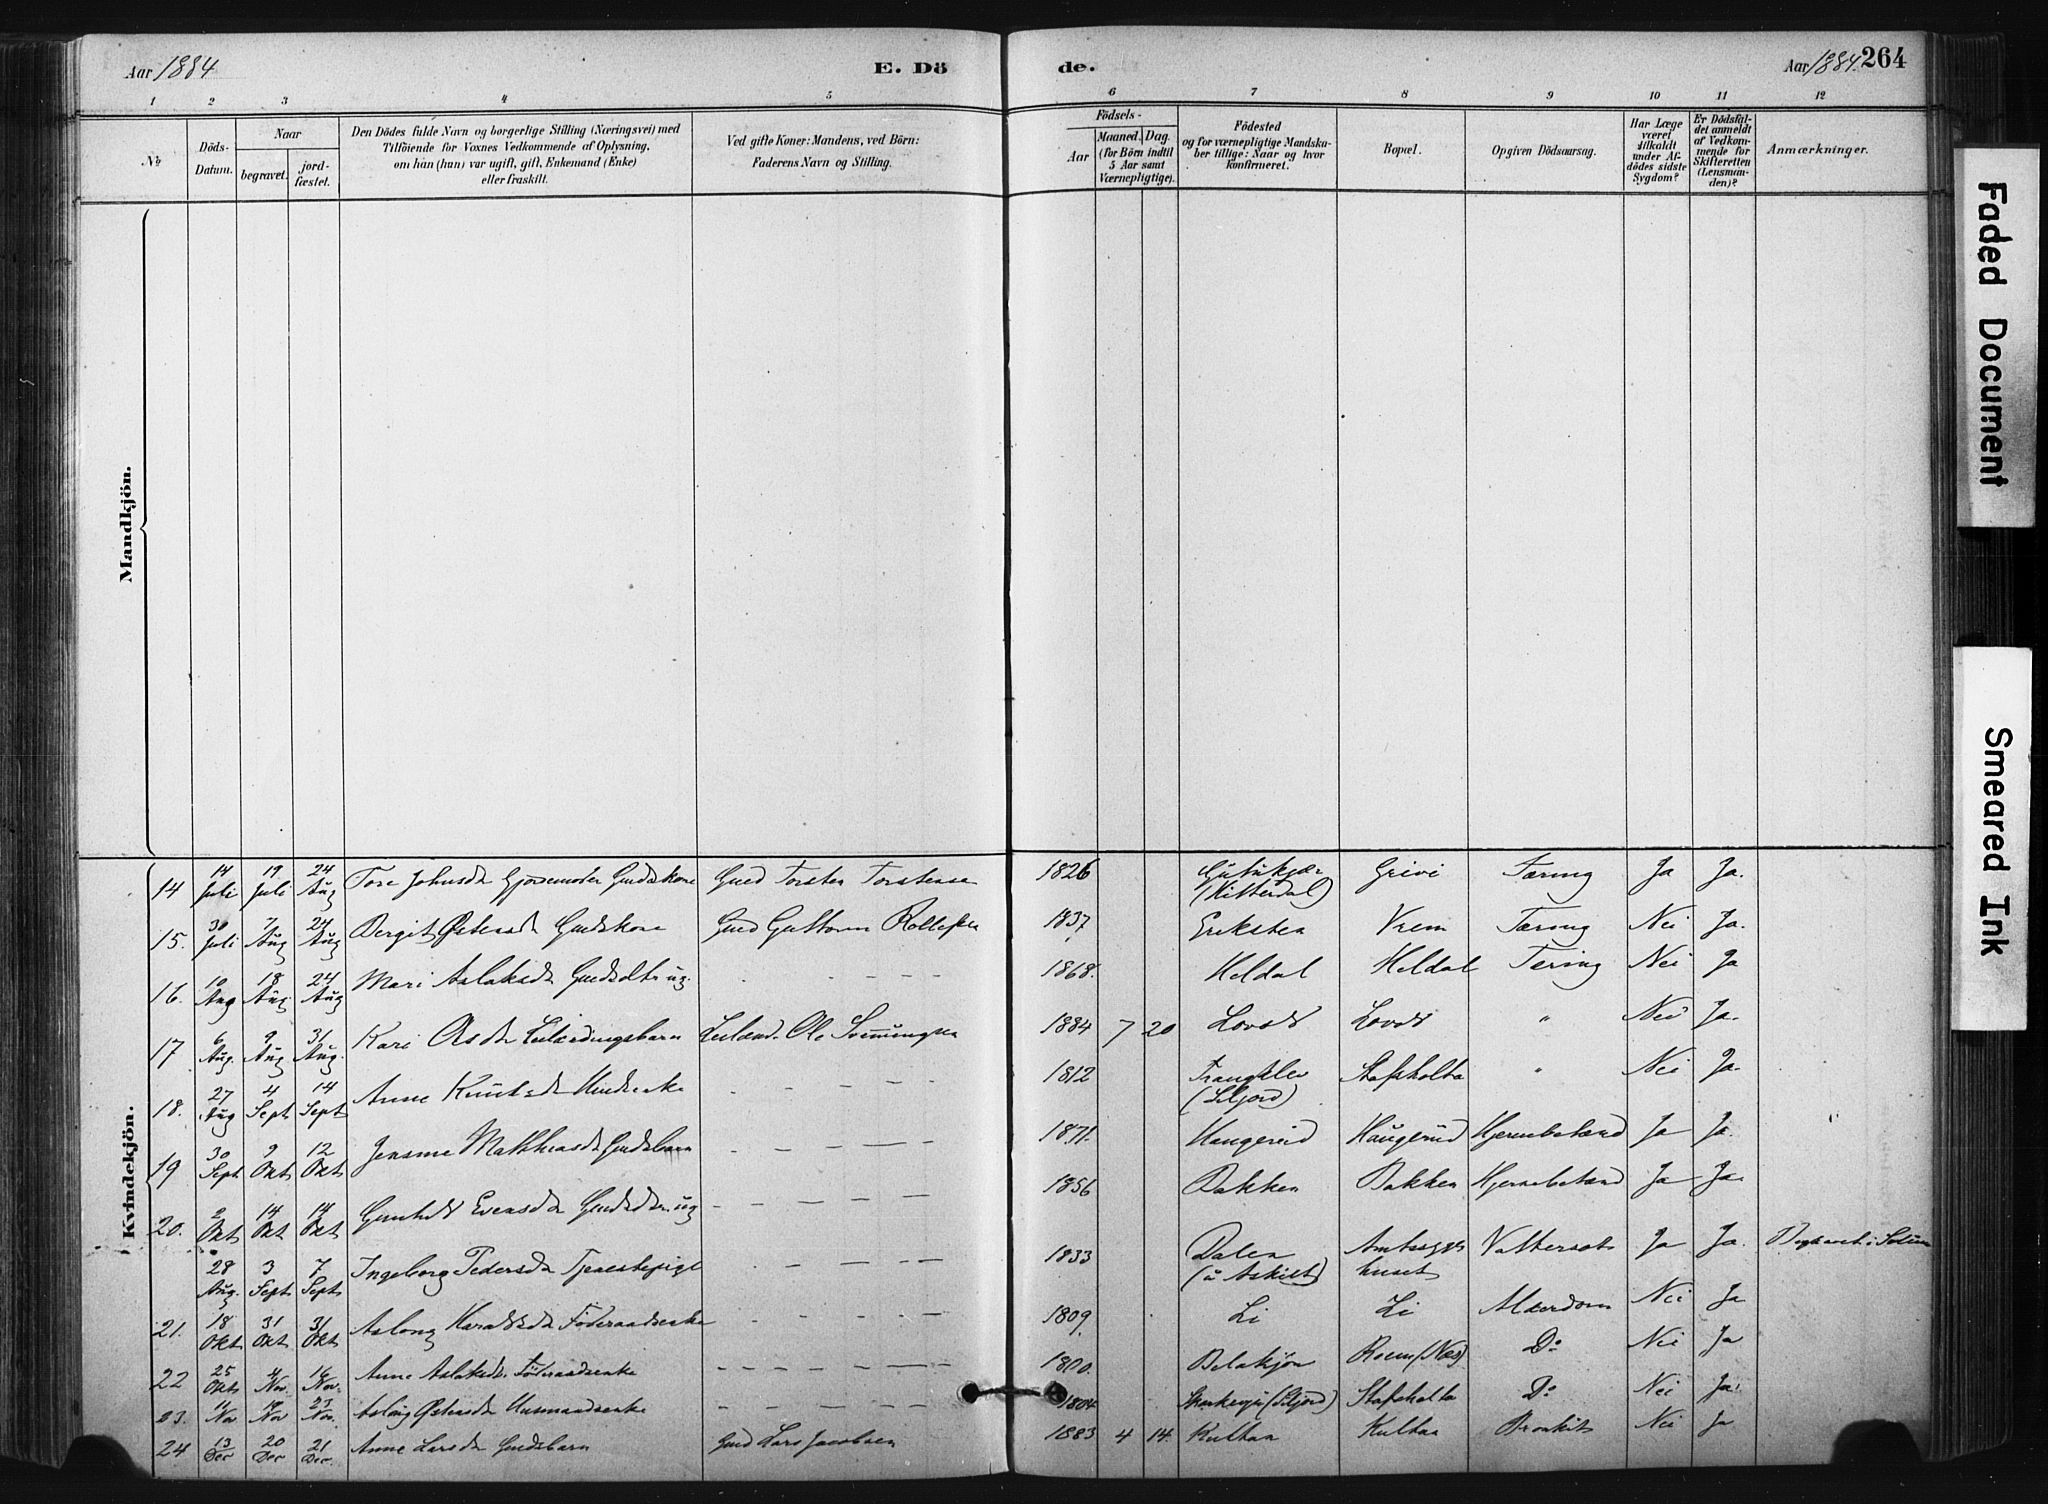 Aar 1884 E. Dö
de. Aar 1884. 264
1 2 3 4 5 6 7 8 9 10 11 12
No
Döds-Datum.
Naar
begravet.
jord-fæstet.
Den Dödes fulde Navn og borgerlige Stilling (Næringsvei) med
Tilföiende for Voxnes Vedkommende af Oplysning,
om hun (han) var ugift, gift, Enkemand (Enke)
eller fraskilt.
Ved gifte Koner: Mandens, ved Börn:
Faderens Navn og Stilling.
Födsels-
Aar
Maaned. Dag.
(for Börn indtil
5 Aar samt
Værnepligtige).
Födested
og for værnepligtige Mandska-
ber tillige: Naar og hvor
konfirmeret.
Bopæl.
Opgiven Dödsaarsag.
Har Læge
været
tilkaldt
under Af-
dödes sidste
Sygdom?
Er Dödsfal-
det anmeldt
af Vedkom-
mende for
Skifteretten
(Lensman-
den)?
Anmærkninger.
Mandkjön.
Kvindekjön.
14 14 Juli 19 Juli 24 Aug Tore Johnsd Gjordemoder Gmdskone Gmd Torsten Torstensen 1826 (Hitterdal) Grivi Tæring Ja Ja.
15. 30 Juli 7 Aug 24 Aug Bergit Østensd Gmdskone Gmd Guttorm Rollefsen 1837 Eriksten Vrem Tæring Nei Ja.
16. 10 Aug 18 Aug. 24 Aug Mari Aslaksd Gmdsdtr ug. 1868. Heldal Heldal Tering Nei Ja
17 6 Aug. 9 Aug 31 Aug. Kari Olsd Leilændingsbarn Leilænd. Ole Svenningsen 1884 7 20 Lovald Lovald " Nei Ja.
18. 27 Aug 4 Sept 14 Sept Anne Knutsd 1812 (Siljord) Stafsholta " Nei Ja.
19 30 Sept 9 Okt 12 Okt Jensine Mathiasd Gmdsbarn 1871. Haugerud Hjernebetænd Ja Ja.
20. 2 Okt 14 Okt 14 Okt Gunhild Evensd Gmdsdtr ug 1856 Bakken Bakken Hjernebetænd Ja Ja.
28 Aug. 3 Sept 7 Sept Ingeborg Pedersd Tjenestepige 1833 Dalen Amtssyge huset Vattersot Ja Ja.
21. 18 Okt 31 Okt 31 Okt Aslaug Haraldsd Föderaadsenke 1809. Li Li Alderdom Nei Ja
22 25 Okt 4 Nov. 16 Nov. Anne Aslaksd. Föderaadsenke 1800. (Næs) Do Nei Ja
23. 11 Nov 19 Nov 23 Nov. Aslaug Østensd Husmandsenke 1804 (Siljord) Stafsholta Do Nei Ja.
24 13 Dec 20 Dec 21 Dec. Anne Larsd Gmdsbarn Gmd Lars Jacobsen 1883 4 14. Kultan Kultan Bronkit Nei Ja
Faded Document
Smeared Ink